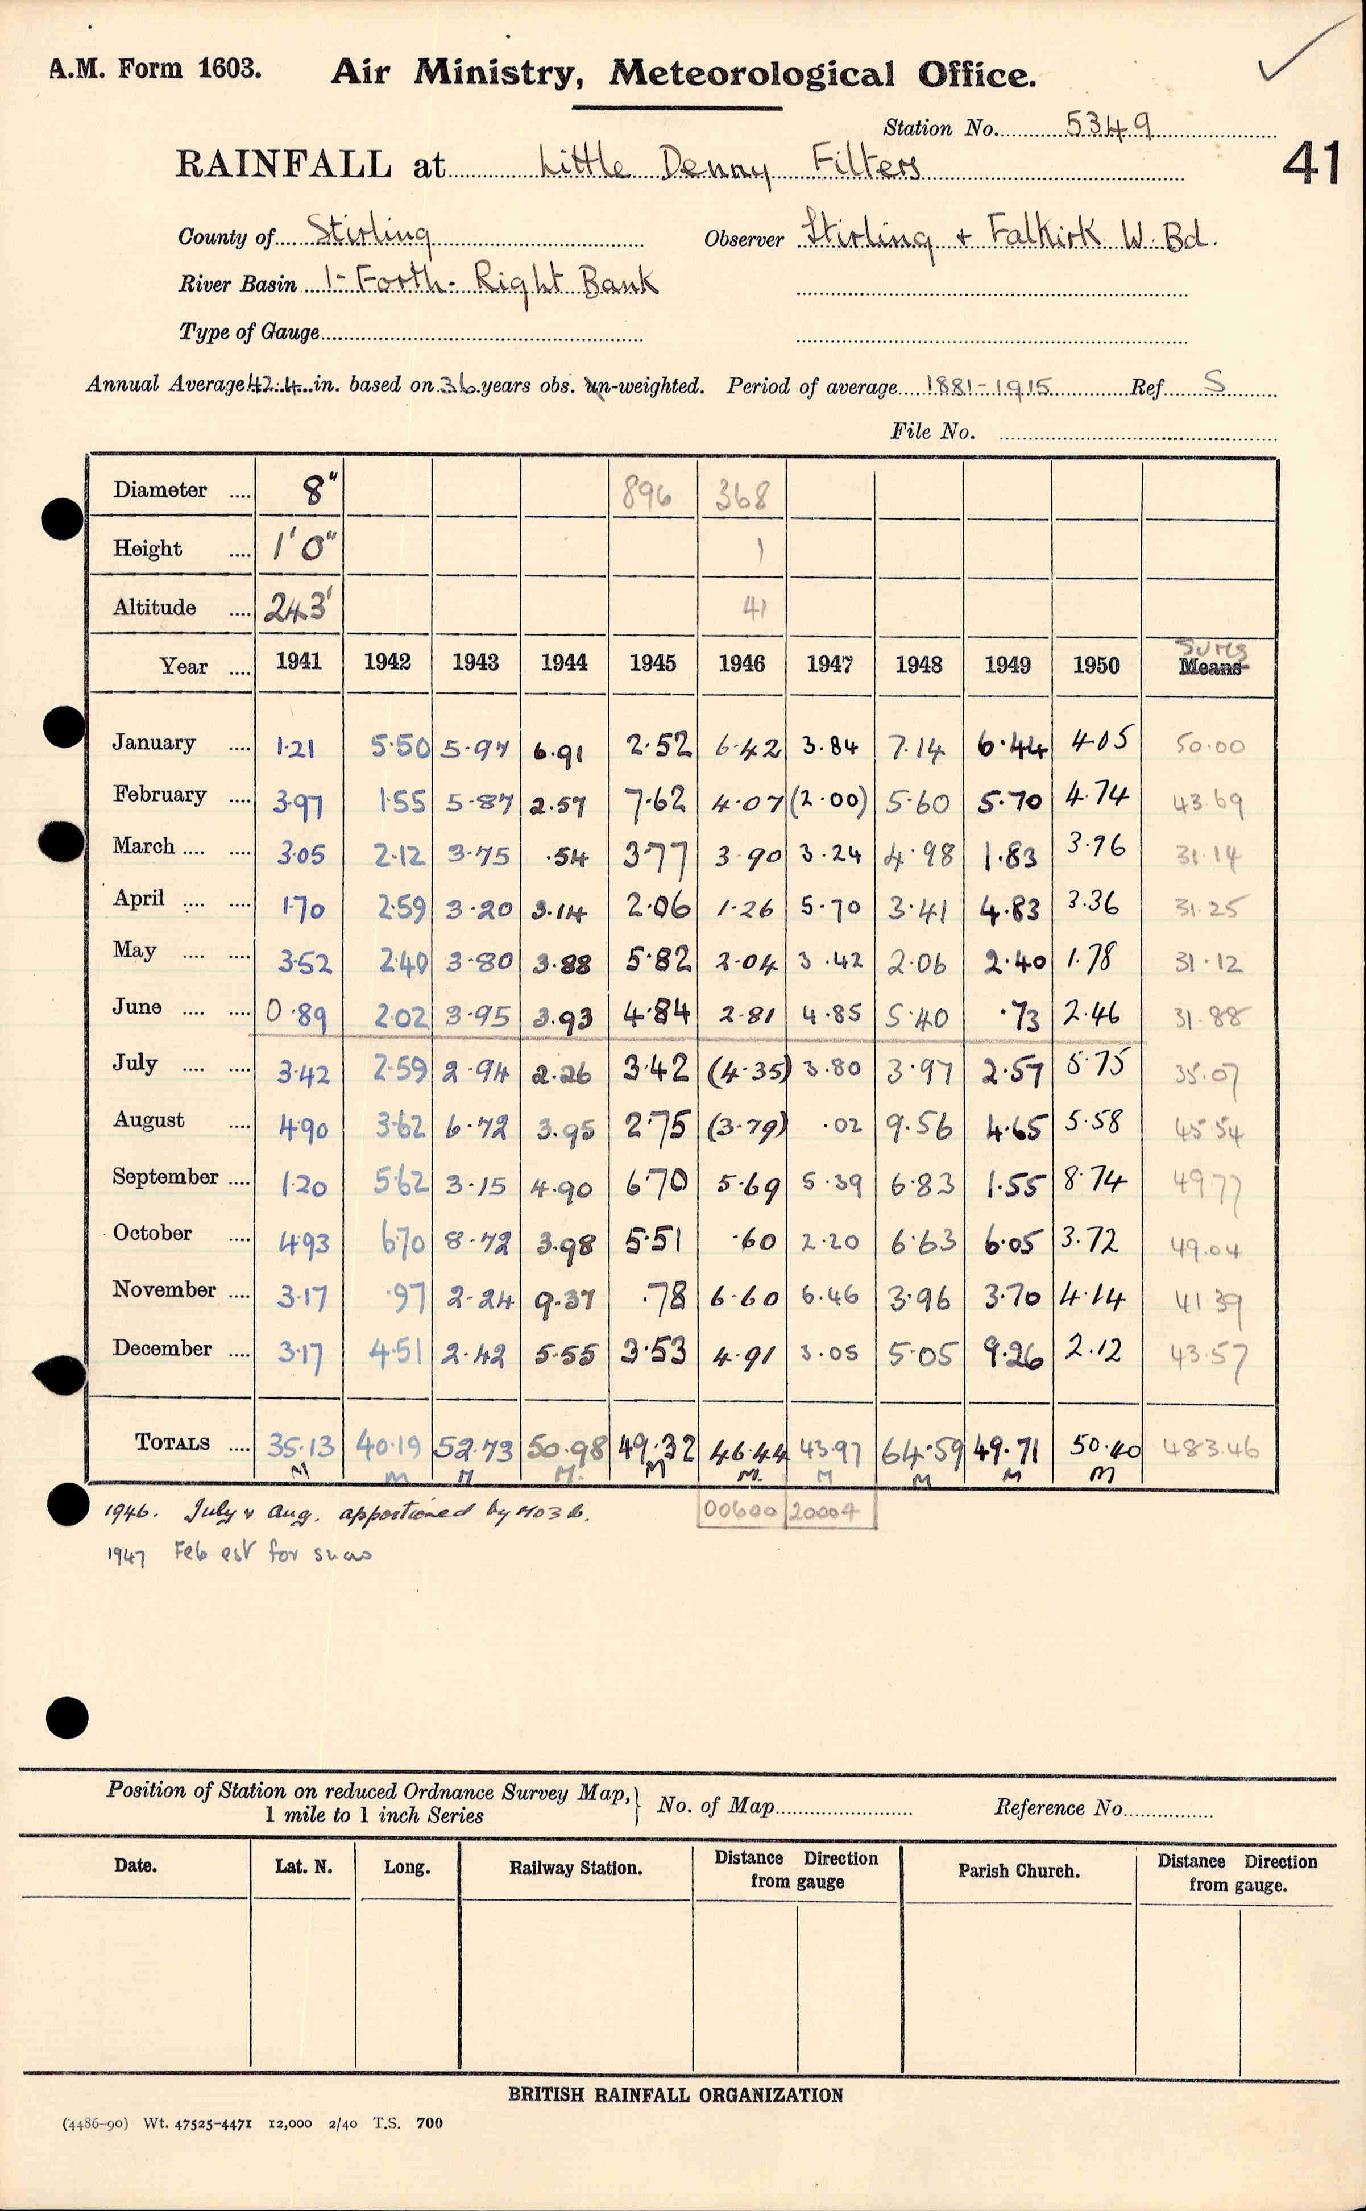 A.M. Form 1603. Air Ministry, Meteorological Office.
Station No. 5349
41
RAINFALL at Little Denny Filters
County of Stirling Observer Stirling + Falkirk W. Bd.
River Basin 1- Forth - Right Bank
Type of Gauge
Annual Average 42.4 in. based on 36 years obs. un-weighted. Period of average 1881-1915 Ref. S
File No.
Diameter .... 8" 896 368
Height .... 1'0" 1
Altitude .... 243' 41
Sums
Year .... 1941 1942 1943 1944 1945 1946 1947 1948 1949 1950 Means
January .... 1.21 5.50 5.97 6.91 2.52 6.42 3.84 7.14 6.44 4.05 50.00
February .... 3.97 1.55 5.87 2.57 7.62 4.07 (2.00) 5.60 5.70 4.74 43.69
March .... .... 3.05 2.12 3.75 .54 3.77 3.90 3.24 4.98 1.83 3.96 31.14
April .... .... 1.70 2.59 3.20 3.14 2.06 1.26 5.70 3.41 4.83 3.36 31.25
May .... .... 3.52 2.40 3.80 3.88 5.82 2.04 3.42 2.06 2.40 1.78 31.12
June .... .... 0.89 2.02 3.95 3.93 4.84 2.81 4.85 5.40 .73 2.46 31.88
July .... .... 3.42 2.59 2.94 2.26 3.42 (4.35) 3.80 3.97 2.57 5.75 35.07
August .... 4.90 3.62 6.72 3.95 2.75 (3.79) .02 9.56 4.65 5.58 45.54
September .... 1.20 5.62 3.15 4.90 6.70 5.69 5.39 6.83 1.55 8.74 49.77
October .... 4.93 6.70 8.72 3.98 5.51 .60 2.20 6.63 6.05 3.72 49.04
November .... 3.17 .97 2.24 9.37 .78 6.60 6.46 3.96 3.70 4.14 41.39
December .... 3.17 4.51 2.42 5.55 3.53 4.91 3.05 5.05 9.26 2.12 43.57
TOTALS .... 35.13 40.19 52.73 50.98 49.32 46.44 43.97 64.59 49.71 50.40 483.46
M M M M. M M. M M M M
1946. July & Aug. apportioned by MO3b. 00600 20004
1947 Feb est for snow
Position of Station on reduced Ordnance Survey Map, 1 mile to 1 inch Series } No. of Map Reference No.
Date. Lat. N. Long. Railway Station. Distance Direction from gauge Parish Church. Distance Direction from gauge.
BRITISH RAINFALL ORGANIZATION
(4486-90) Wt. 47525-4471 12,000 2/40 T.S. 700